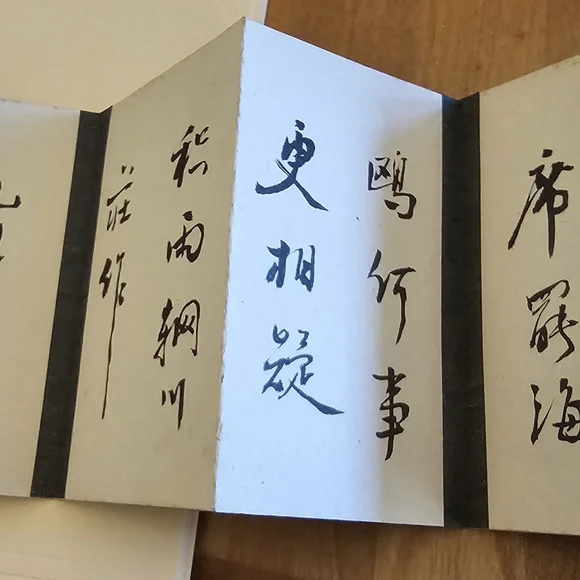 席罷海
鷗何事
更相疑
積雨輞川
莊作